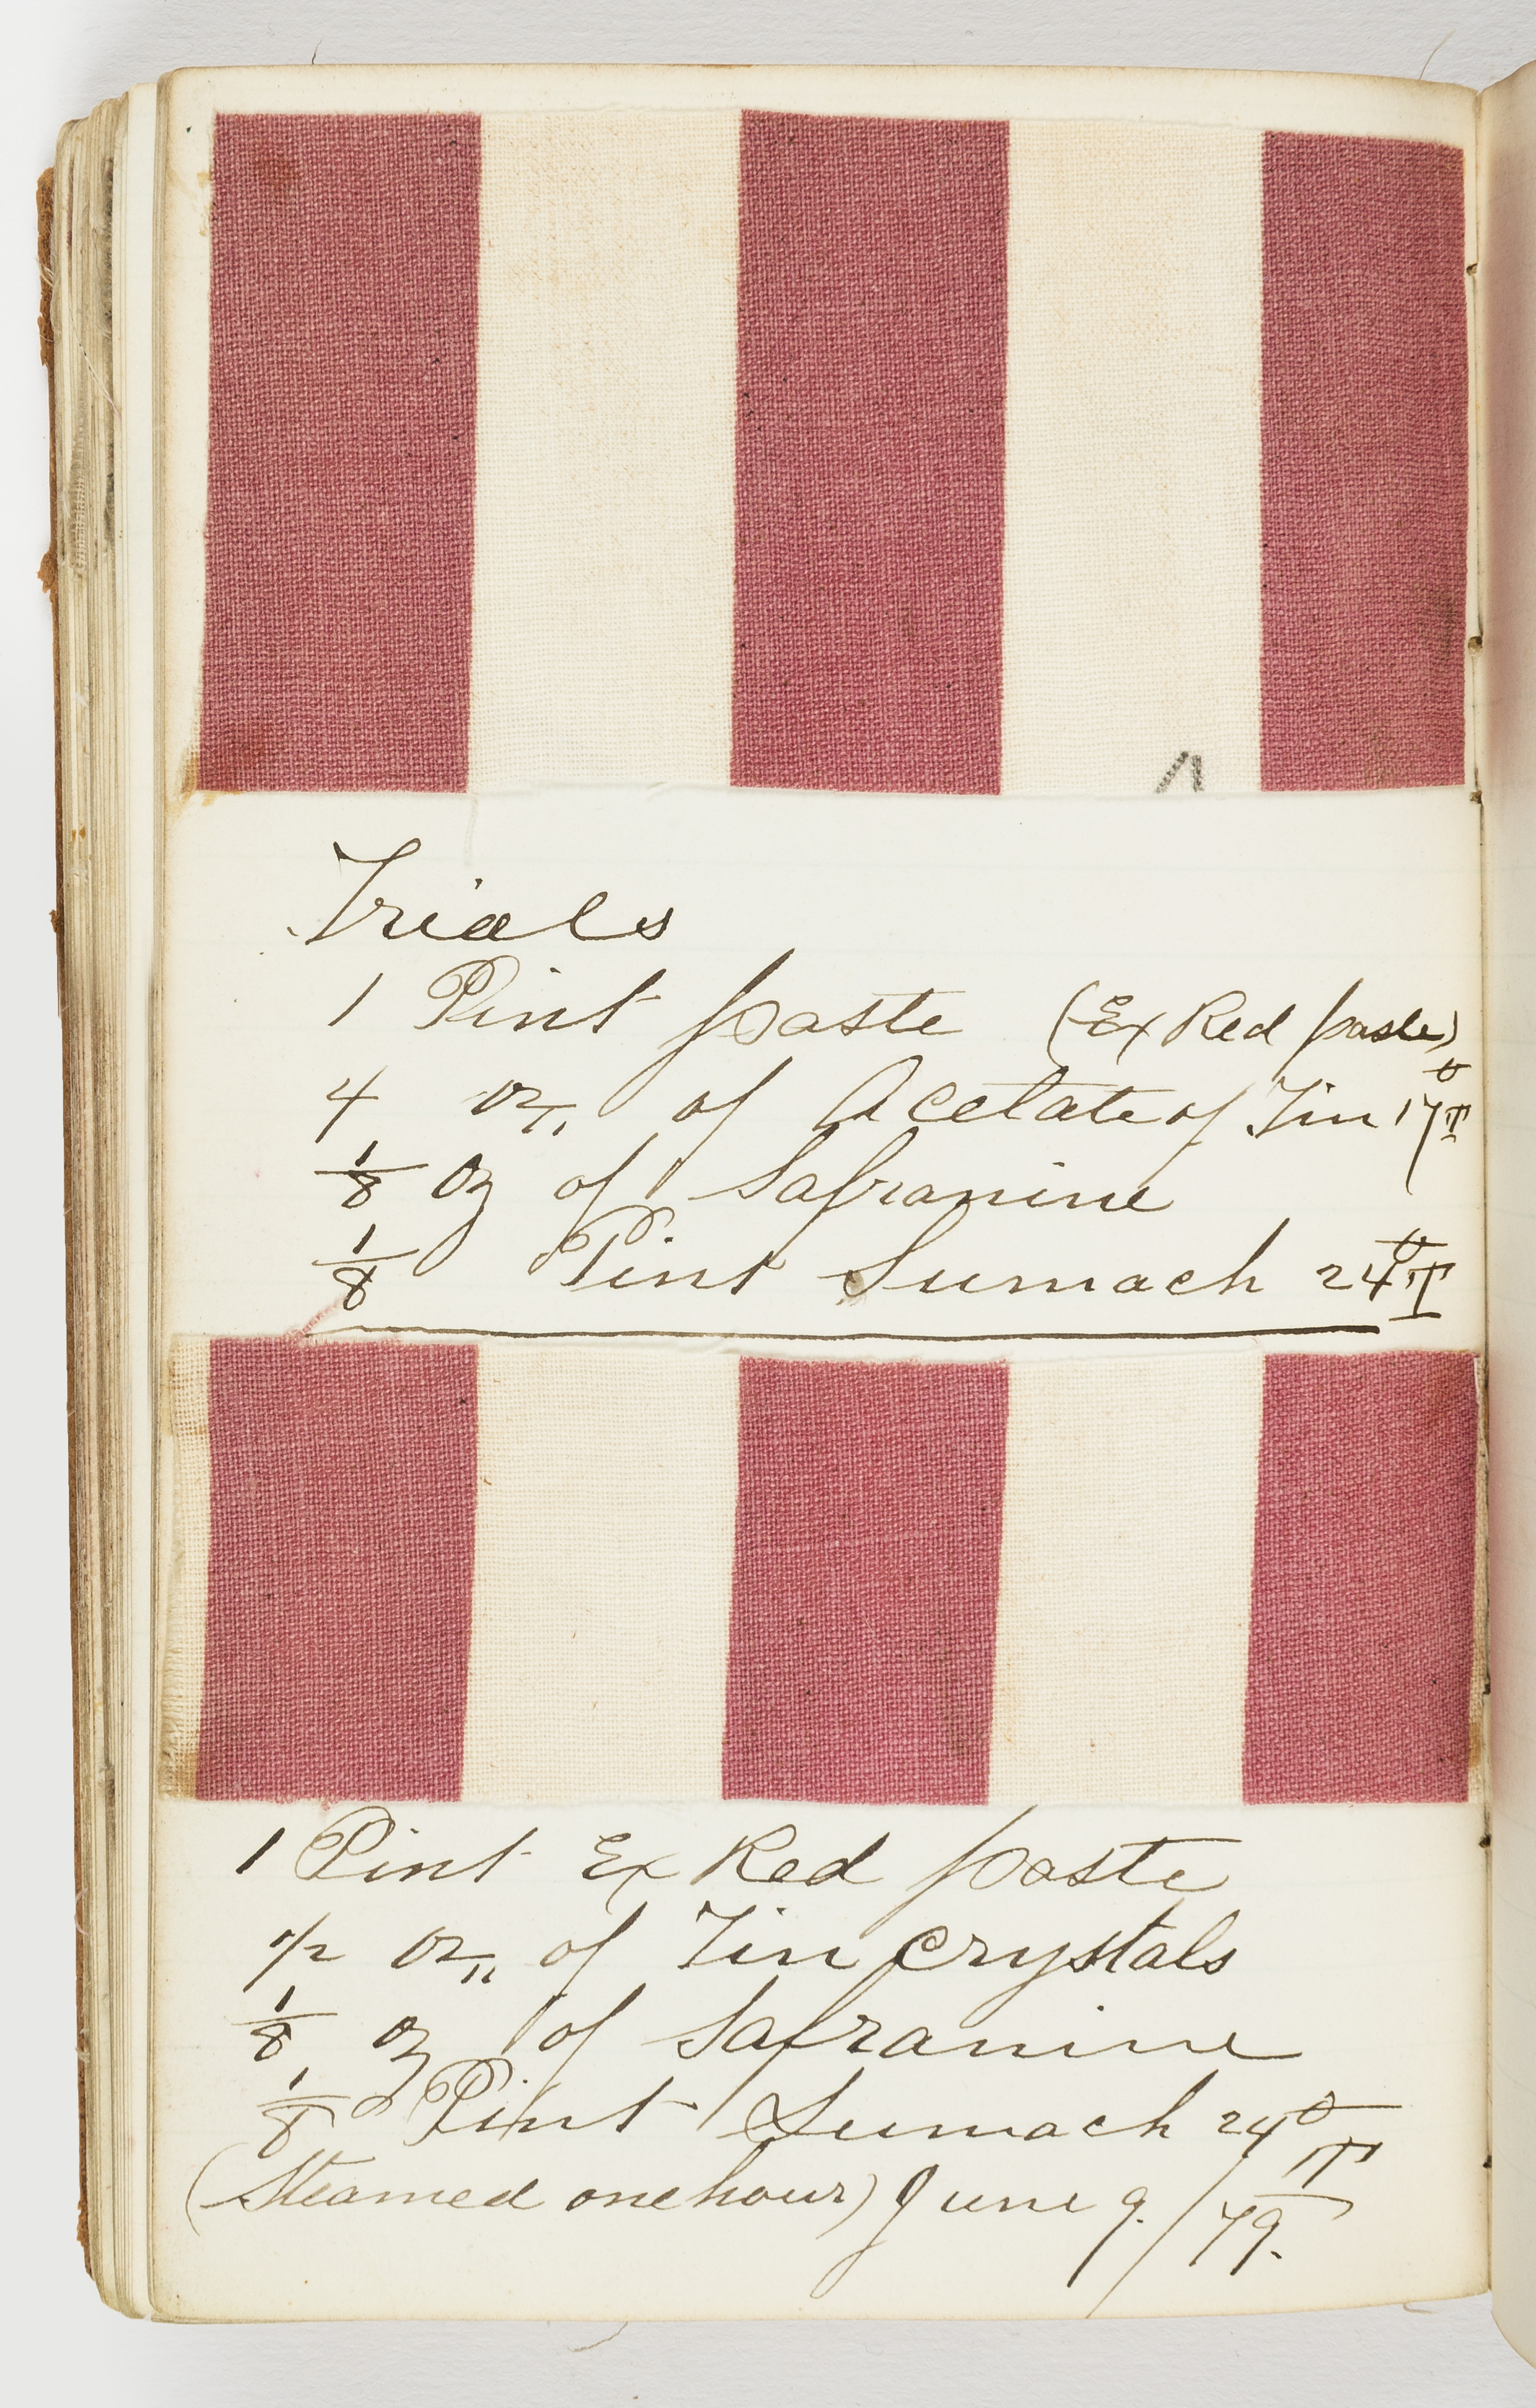 Trials
1 Pint paste (Ex Red paste)
4 oz,, of Acetate of Tin 17° T
1/8 oz of Safranine
1/8 Pint Sumach 24° T
1 Pint Ex Red paste
1/2 oz,, of Tin Crystals
1/8 oz of Safranine
1/8 Pint Sumach 24° T
(Steamed one hour) June 9./79.